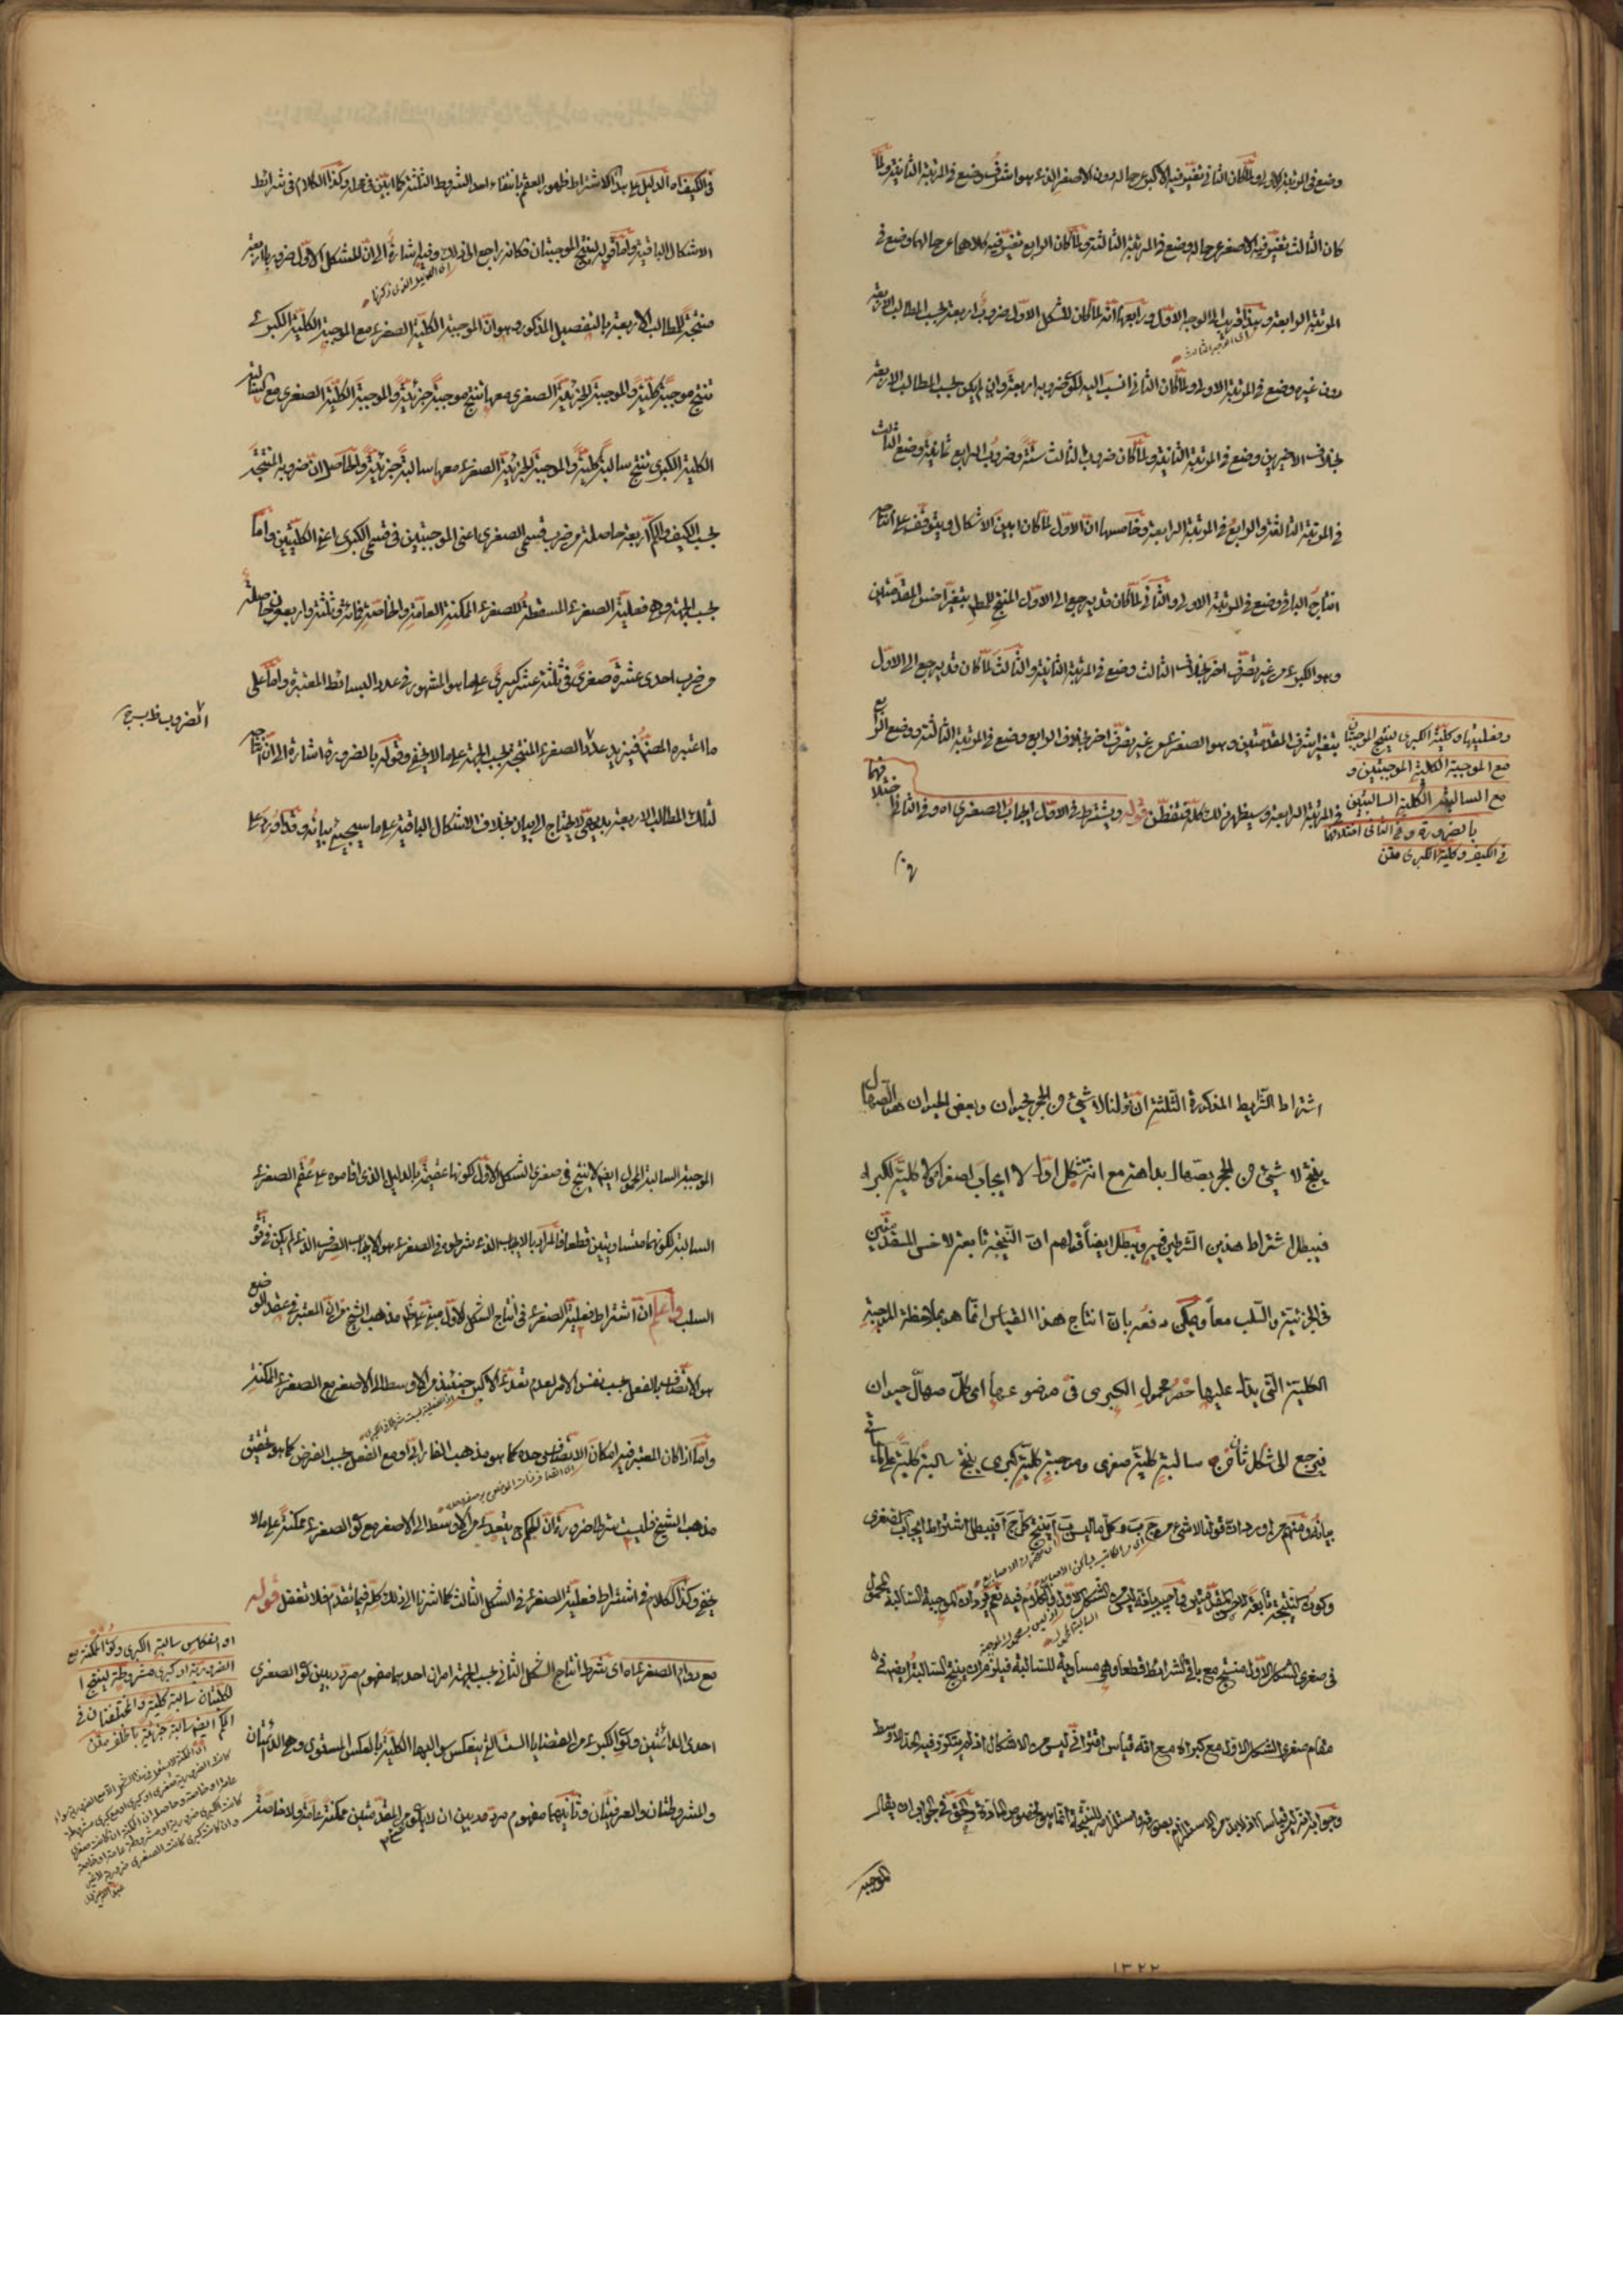 وضع في المرتبة الاولى ولما كان الثاني تغير فيه الاكبر عن حاله دون الاصغر الذي هو اشرف وضع في المرتبة الثانية ولما
كان الثالث تغير فيه الاصغر عن حاله وضع في المرتبة الثالثة ولما كان الرابع تغير فيه كلاهما عن حالهما وضع في
المرتبة الرابعة وهذا قريب الى الوجه الاول ورابعها انه لما كان للشكل الاول ضروب اربعة بحسب المطالب الاربعة
اى الوجه الثالث
دون غيره وضع في المرتبة الاولى ولما كان الثاني انسب اليه لكون ضروبه اربعة وان لم يكن بحسب المطالب الاربعة
بخلاف الاخيرين وضع في المرتبة الثانية ولما كان ضروب الثالث ستة وضروب الرابع ثمانية وضع الثالث
في المرتبة الثالثة والرابع في المرتبة الرابعة وخامسها ان الاول لما كان ابين الاشكال ويتوقف على انتاجه
انتاج الباقي وضع في المرتبة الاولى والثاني لما كان قد يرجع الى الاول المنتج للمط بتغير اخس المقدمتين
وهو الكبرى من غير تصرف اخر بخلاف الثالث وضع في المرتبة الثانية والثالث لما كان قد يرجع الى الاول
بتغير اشرف المقدمتين وهو الصغرى من غير تصرف اخر بخلاف الرابع وضع في المرتبة الثالثة ووضع الرابع
في المرتبة الرابعة وسيظهر ذلك كله فتفطن قوله ويشترط في الاول ايجاب الصغرى اه وفي الثاني اختلافهما
وفعليتها وكلية الكبرى لينتج الموجبتان
مع الموجبة الكلية الموجبتين و
مع السالبة الكلية السالبتين
بالضرورة وفي الثاني اختلافهما
في الكيف وكلية الكبرى متن
في الكيف اه الدليل على هذا الاشتراط ظهور العقم بانتفاء احد الشروط الثلثة كما بين في محله وكذا الكلام في شرائط
الاشكال الباقية واما قوله لينتج الموجبتان فكانه راجع الى ذلك وفيه اشارة الى ان للشكل الاول ضروبا اربعة
منتجة للمطالب الاربعة بالتفصيل المذكور وهو ان الموجبة الكلية الصغرى مع الموجبة الكلية الكبرى
تنتج موجبة كلية والموجبة الجزئية الصغرى معها تنتج موجبة جزئية والموجبة الكلية الصغرى مع السالبة
الكلية الكبرى تنتج سالبة كلية والموجبة الجزئية الصغرى معها سالبة جزئية والحاصل ان ضروبه المنتجة
بحسب الكيف والكم اربعة حاصلة من ضرب قسمي الصغرى اعني الموجبتين في قسمي الكبرى اعني الكليتين واما
بحسب الجهة وهو فعلية الصغرى المسقطة للصغرى الممكنة العامة والخاصة فمائة وثلثة واربعون حاصلة
من ضرب احدى عشرة صغرى في ثلثة عشر كبرى على ما هو المشهور في عدد البسائط المعتبرة واما على
ما اعتبره المصنف فيزيد عدد الصغرى المنتجة بحسب الجهة على ما لا يخفى وقوله بالضرورة اشارة الى ان انتاجه
لتلك المطالب الاربعة بديهي لا يحتاج الى بيان بخلاف الاشكال الباقية على ما سيجيء بيانه وقد اورد على
اشتراط الشرايط المذكورة الثلثة ان قولنا لا شيء من الحجر بحيوان وبعض الحيوان هو الصهال
ينتج لا شيء من الحجر بصهال بداهة مع انه شكل اول لا ايجاب لصغراه ولا كلية لكبراه
فيبطل اشتراط هذين الشرطين فيه ويبطل ايضا قولهم ان النتيجة تابعة لاخس المقدمتين
في الجزئية والسلب معا ويمكن دفعه بان انتاج هذا القياس انما هو بملاحظة الموجبة
الكلية التي يدل عليها حصر محمول الكبرى في موضوعها اى كل صهال حيوان
فيرجع الى شكل ثان من سالبة كلية صغرى وموجبة كلية كبرى ينتج سالبة كلية على ما سيأتي
بيانه ومنهم من اورد ان قولنا لا شيء من ج ب وكل ما ليس ب آ ينتج كل ج آ فيبطل اشتراط ايجاب الصغرى
وكون النتيجة تابعة لاخس المقدمتين واجيب بانه ليس من الشكل الاول والكلام فيه نعم يرد ان الموجبة السالبة المحمول
في صغرى الشكل الاول منتج مع باقي الشرائط قطعا وهي مساوية للسالبة فيلزم ان ينتج السالبة ايضا في
مقام صغرى الشكل الاول مع كبراه مع انه قياس اقترانى ليس من الاشكال اذ لم يتكرر فيه الحد الاوسط
وجوابه انه ليس قياسا اذ لابد من الاستلزام بصورته واستلزامه للنتيجة انما هو لخصوص المادة والحق في الجواب ان يقال
الموجبة
الموجبة السالبة المحمول ايضا لا ينتج في صغرى الشكل الاول لكونها عقيمة بالدليل الذي اقاموه على عقم الصغرى
السالبة لكونهما متساويتين قطعا فالمراد بالايجاب الذي شرطوه في الصغرى هو الايجاب الصرف الذي لم يكن في قوة
السلب واعلم ان اشتراط فعلية الصغرى في انتاج الشكل الاول مبني على مذهب الشيخ من ان المعتبر في عقد الوضع
هو الاتصاف بالفعل بحسب نفس الامر لعدم تعدي الاكبر حينئذ من الاوسط الى الاصغر مع الصغرى الممكنة
واما اذا كان المعتبر فيه امكان الاتصاف وحده كما هو مذهب الفارابي او مع الفعل بحسب الفرض كما هو تحقيق
مذهب الشيخ فليست شرطا ضرورة ان الحكم ح يتعدى من الاوسط الى الاصغر مع كون الصغرى ممكنة على ما لا
يخفى وكذا الكلام في اشتراط فعلية الصغرى في الشكل الثالث كما اشرنا الى ذلك كله فيما تقدم فلا تغفل قوله
مع دوام الصغرى اه اى شرط انتاج الشكل الثاني بحسب الجهة امران احدهما مفهوم مردد بين كون الصغرى
احدى الدائمتين وكون الكبرى من القضايا الست التي ينعكس سوالبها الكلية بالعكس المستوى وهي الدائمتان
والمشروطتان والعرفيتان وثانيهما مفهوم مردد بين ان لا يكون من المقدمتين ممكنة عامة ولا خاصة
او انعكاس سالبة الكبرى وكون الممكنة مع
الضرورية او كبرى مشروطة لينتج
الكليتان سالبة كلية والمختلفتان في
الكم ايضا سالبة جزئية بالخلف متن
١٣٢٢